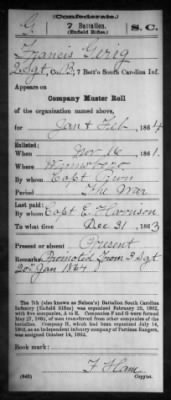 (Confederate.)
G 7 Battalion. S. C.
(Enfield Rifles.)
Francis Gerig
2 Sgt, Co. B, 7 Batt'n South Carolina Inf.
Appears on
Company Muster Roll
of the organization named above,
for Jan & Feb, 1864
Enlisted:
When Nov 16, 1861
Where
By whom Capt
Period The War
Last paid:
By whom Capt E. Harrison
To what time Dec 31, 1863
Present or absent Present
Remarks: Promoted from 3 Sgt
20th Jan 1864
The 7th (also known as Nelson's) Battalion South Carolina
Infantry (Enfield Rifles) was organized February 22, 1862,
with five companies, A to E. Companies F and G were formed
May 1862, of men transferred from other companies of the
battalion. Company H, which had been organized July 14,
1862, as an independent company of Partisan Rangers,
was assigned October 14, 1862.
Book mark:
F. Ham
(642) Copyist.